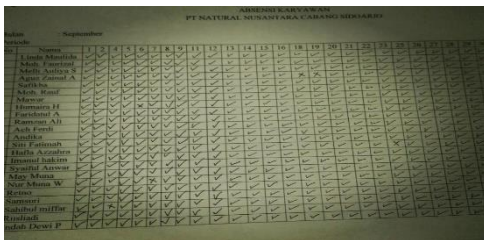 ABSENSI KARYAWAN
PT NATURAL NUSANTARA CABANG SIDOARJO
Bulan September
Periode
No Nama 1 2 4 5 6 7 8 9 11 12 13 14 15 16 18 19 20 21 22 23 25 26 27 28 29
Linda Maulida
Moh. Fauzizal
Agus Zainal A
Sufikha
Moh. Rauf
Mawar
Humaira H
Faridatul A
Ramzan Ali
Ach Ferdi
Andika
Siti Fatimah
Hafla Azzahra
Imanul hakim
Syaiful Anwar
May Muna
Nur Muna W
Retno
Samsuri
Sahibul miftar
Rusliadi
Indah Dewi P